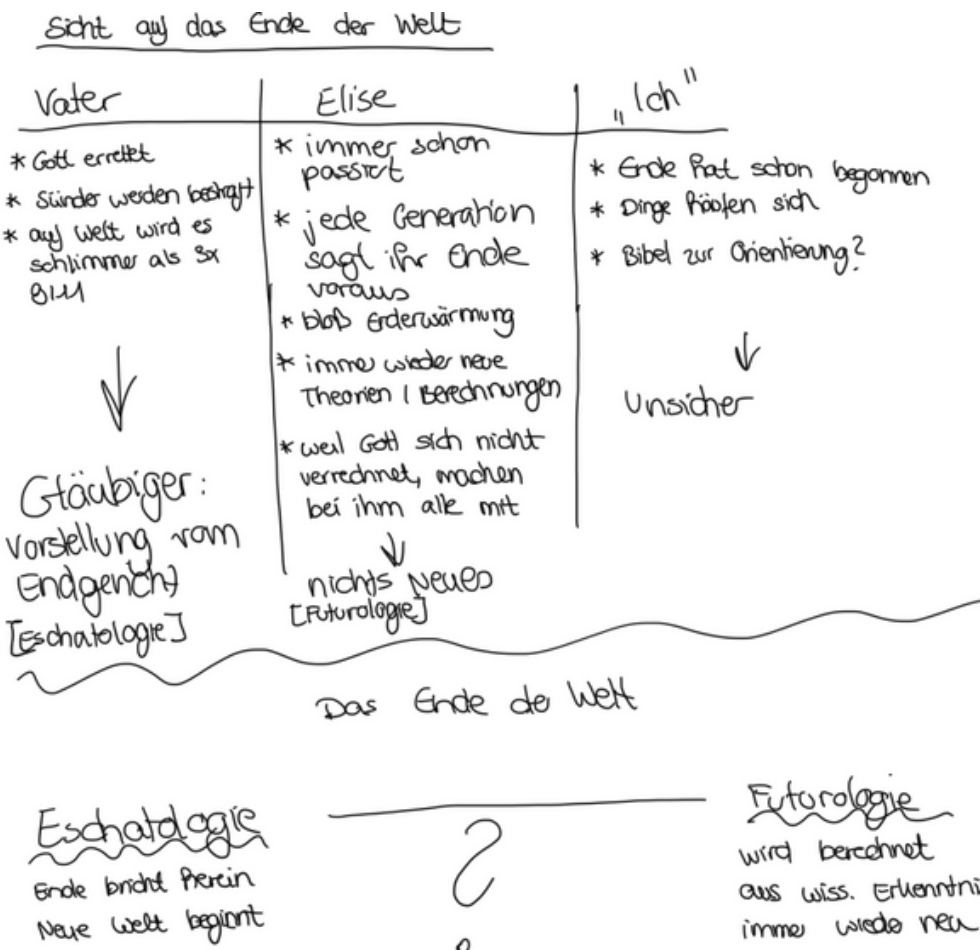 Sicht auf das Ende der Welt
Vater
* Gott errettet
* Sünder werden bestraft
* auf Welt wird es
schlimmer als 3x
9/11
Gläubiger:
Vorstellung vom
Endgericht
[Eschatologie]
Elise
* immer schon
passiert
* jede Generation
sagt ihr Ende
voraus
* bloß Erderwärmung
* immer wieder neue
Theorien / Berechnungen
* weil Gott sich nicht
verrechnet, machen
bei ihm alle mit
nichts Neues
[Futurologie]
„Ich"
* Ende hat schon begonnen
* Dinge häufen sich
* Bibel zur Orientierung?
Unsicher
Das Ende der Welt
Eschatologie
Ende bricht herein
Neue Welt beginnt
?
Futurologie
wird berechnet
aus wiss. Erkenntni
immer wieder neu